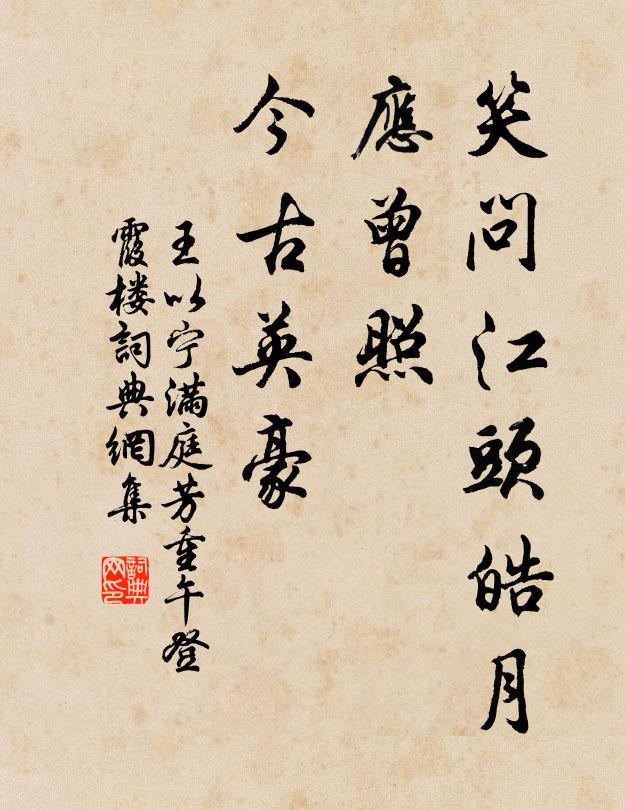 笑問江頭皓月
應曾照
今古英豪
王以宁满庭芳重午登
霞楼詞典網集
詞典网印